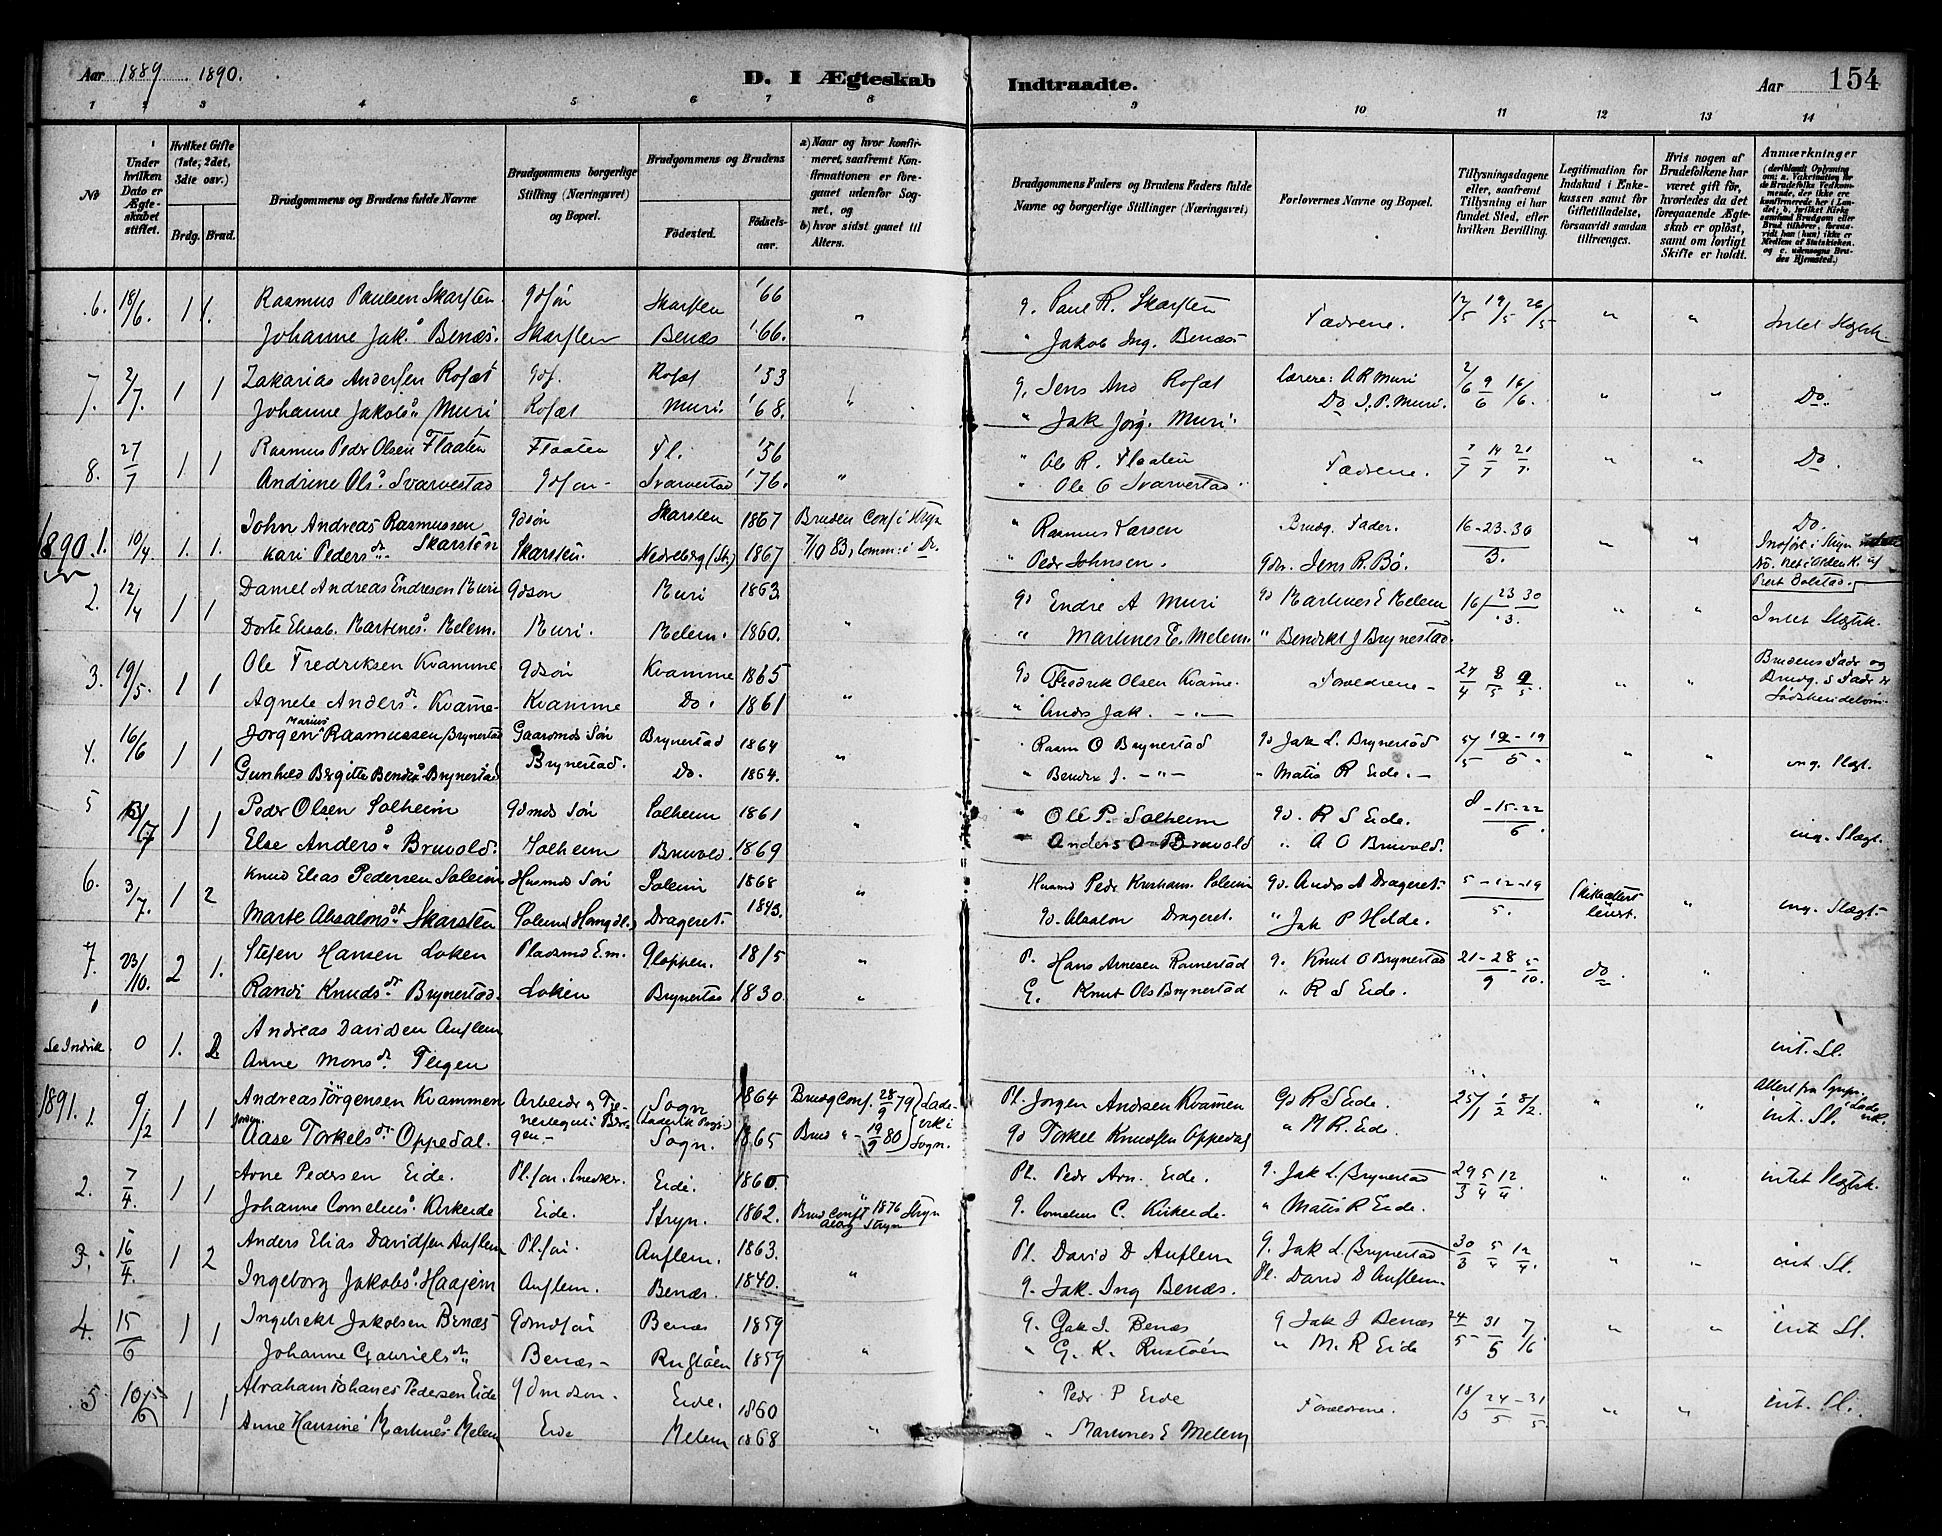 Aar 1889 1890. D. I Ægteskab Indtraadte. Aar 154
1 2 3 4 5 6 7 8 9 10 11 12 13 14
№
Under hvilken Dato er Ægteskabet stiftet.
Hvilket Gifte (1ste, 2det, 3die osv.)
Brdg. Brud.
Brudgommens og Brudens fulde Navne
Brudgommens borgerlige Stilling (Næringsvei) og Bopæl.
Brudgommens og Brudens
Fødested. Fødselsaar.
a) Naar og hvor konfirmeret, saafremt Konfirmationen er foregaaet udenfor Sognet, og
b) hvor sidst gaaet til Alters.
Brudgommens Faders og Brudens Faders fulde Navne og borgerlige Stillinger (Næringsvei)
Forlovernes Navne og Bopæl.
Tillysningsdagene eller, saafremt Tillysning ei har fundet Sted, efter hvilken Bevilling.
Legitimation for Indskud i Enkekassen samt for Giftetilladelse, forsaavidt saadan tiltrænges.
Hvis nogen af Brudefolkene har været gift før, hvorledes da det foregaaende Ægteskab er opløst, samt om lovligt Skifte er holdt.
Anmærkninger
6. 18/6. 1 1. Rasmus Paulsen Skarsten. Gdsøn Skarsten '66 " g. Paul R. Skarsten Fædrene. 12/5 19/5 26/5 " " Intet Slegtsk.
Johanne Jak.d Benæs. Skarsten Benæs '66. " Jakob Ing. Benæs
7. 2/7. 1 1 Zakarias Andersen Rosæt Gds. Rosæt '53 g. Jens And Rosæt Lærere: A R Muri 2/6 9/6 16/6. " " Do.
Johanne Jakobsd Muri Rosæt Muri. '68. " Jak Jørg. Muri. Do J. P. Muri.
8. 27/7 1 1 Rasmus Peder Olsen Flaaten Flaaten Fl. '56 " " Ole R. Flaaten Fædrene. 7/7 14/7 21/7. " " Do.
Andrine Olsd Svarvestad Gdsøn Svarvestad '76. " Ole O Svarvestad
1890. 1. 10/4. 1. 1. John Andreas Rasmussen Gdsøn Skarsten 1867 Bruden Conf. i Stryn " Rasmus Larsen Brudg. Fader. 16-23-30 " " Do.
Kari Pedersdtr. Skarsten Skarsten. Nedreberg 1867 7/10 83, comm: i Do. " Peder Johnsen. Gdr. Jens R. Bø. 3. Indført i Stryn
2. 12/4 1 1 Daniel Andreas Endresen Muri Gdsøn Muri 1863. " Gd Endre A Muri Gd Martines E Melem 16/ 23 30 " " Intet Slegtsk.
Dorte Elisab. Martinesd Melem. Muri. Melem. 1860. " Martines E. Melem. " Bendikt J Brynestad. 3.
3. 19/5. 1 1 Ole Fredriksen Kvamme Gdsøn Kvamme 1865 " Gd Fredrik Olsen Kvamme. Forældrene - 27/4 8/5 9/5. " " Brudens Fadr og
Agnete Andersd. Kvamme Kvamme Do. 1861 " Anders Jak. -"- Brudg. s Fadr
4. 16/6 1 1 Jørgen Marius Rasmussen Brynestad Gaarmds Søn Brynestad 1864 " Rasm O Brynestad Gd Jak L. Brynestad 5/5 12-19 " " ing. Slegt.
Gunhild Birgitte Bendsd Brynestad Brynestad. Do. 1864. " Bendix J. -"- " Matis R Eide. - 5.
5 13/7 1 1 Peder Olsen Solheim Gdmds Søn Solheim 1861 " " Ole P. Solheim Gd. R S Eide. 8-15-22 ing. Slegt.
Else Andersd Bruvold. Solheim Bruvold. 1869 " Anders O Bruvold " A O Bruvold. 6.
6. 3/7. 1 2 Knud Elias Pedersen Soleim Husmds Søn Soleim 1868 " Husmd Pedr Kristians. Soleim Gd. Anders A Drageset. 5-12-19 Skifteattest " ing. Slegt.
Marte Absalonsdt. Skarsten Soleim Drageset. 1843. Gd. Absalon Drageset. " Jak P Helde. 5. leveret.
7. 23/10. 2 1. Steffen Hansen Løken Pladsmd E.m. Gloppen. 1815 " P. Hans Arnesen Ravnestad g. Knut O Brynestad 21-28/9-5/10. do. "
Randi Knudsdt. Brynestad. Løken Brynestad 1830. " G. Knut Ols Brynestad " R S Eide.
Se Indvik 0 1. 2 Andreas Davidsen Auflem int. Sl.
Anne Monsdt Flugen
1891. 1. 9/2 1 1 Andreas Jørgensen Kvammen Arbeider Sogn 1864 Brudg Conf. 28/9 79 Pl. Jørgen Andrsen Kvamen Gd R S Eide. 25/1 1/2 8/2. " " Attest fra
Aase Torkelsdt Oppedal. Sogn. 1865 Brud " - 19/9 80 Sogn. Gd Torkel Knudsen Oppedal " M R. Eide. int. Sl.
2. 7/4 1 1 Arne Pedersen Eide. Pl.søn. Snedker. Eide. 1860. Pl. Pedr Arn. Eide. g. Jak L. Brynestad 29/3 5/4 12/4. " " intet Slegtsk.
Johanne Corneliusd Kirkeide Eide. Stryn. 1862. Brud conf. 1876 Stryn g. Cornelius C. Kirkeide. " Matis R Eide.
3. 16/4. 1 2 Anders Elias Davidsen Auflem Pl.søn. Auflem. 1863. " Pl. David D Auflem g. Jak L. Brynestad 30/3 5/4 12/4. " " int Sl.
Ingeborg Jakobsd Haajem Auflem. Benæs. 1840. g. Jak. Ing Benæs. Pl. David D Auflem.
4. 15/6 1 1 Ingebrekt Jakobsen Benæs Gdmdsøn Benæs 1859 " g. Jak I. Benæs g Jak I Benæs 24/5 31/5 7/6 " " int Sl.
Johanne Gabrielsdt Benæs- Rustøen 1859 " G. K. Rustøen " M. R Eide
5 10/6 1 1 Abraham Johanes Pedersen Eide Gdmdsøn. Eide. 1860 " " Pedr P Eide Forældrene. 18/5 24/5-31/5. " " int. Sl.
Anne Hansine Martinesd Melem Eide Melem 1868 " Martines E Melem